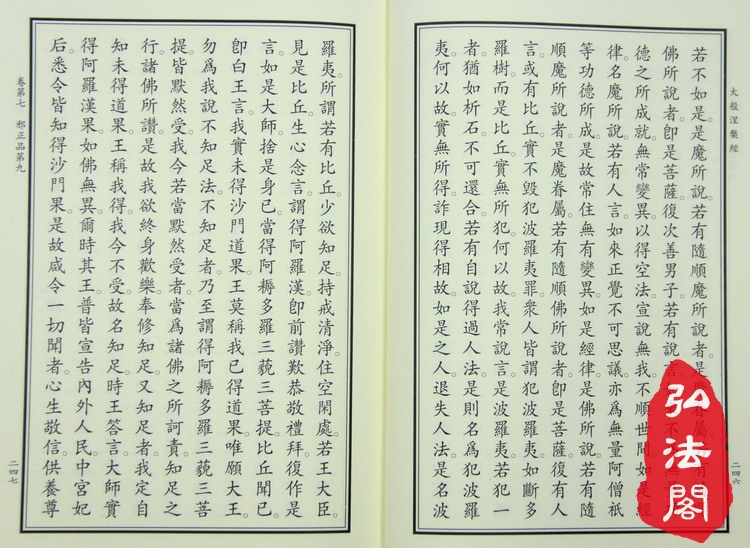 大般涅槃經
若不如是。是魔所說。若有隨順魔所說者。是眷屬。有
佛所說者。即是菩薩。復次善男子。若有說言不
德之所成就。無常變異。以得空法宣說無我。不順世間。如是經
律名魔所說。若有人言。如來正覺不可思議。亦為無量阿僧祇
等功德所成。是故常住無有變異。如是經律是佛所說。若有隨
順魔所說者。是魔眷屬。若有隨順佛所說者。即是菩薩。復有人
言。或有比丘實不毀犯波羅夷罪。眾人皆謂犯波羅夷。如斷多
羅樹。而是比丘實無所犯。何以故。我常說言。是波羅夷。若犯一
者。猶如析石不可還合。若有自說得過人法。是則名為犯波羅
夷。何以故。實無所得。詐現得相故。如是之人。退失人法。是名波
二四六
弘法閣
羅夷。所謂若有比丘。少欲知足。持戒清淨。住空閑處。若王大臣。
見是比丘。生心念言。謂得阿羅漢。即前讚歎恭敬禮拜。復作是
言。如是大師。捨是身已。當得阿耨多羅三藐三菩提。比丘聞已。
即白王言。我實未得沙門道果。王莫稱我已得道果。唯願大王。
勿為我說不知足法。不知足者。乃至謂得阿耨多羅三藐三菩
提。皆默然受。我今若當默然受者。當為諸佛之所訶責。知足之
行。諸佛所讚。是故我欲終身歡樂奉修知足。又知足者。我定自
知未得道果。王稱我得。我今不受。故名知足。時王答言。大師實
得阿羅漢果。如佛無異。爾時其王普皆宣告內外人民。中宮妃
后。悉令皆知得沙門果。是故咸令一切聞者。心生敬信。供養尊
卷第七 邪正品第九
二四七